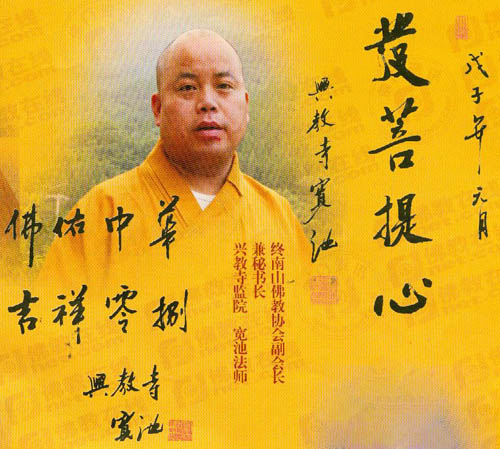 戊子年元月
發菩提心
興教寺寬池
终南山佛教协会副会长
兼秘书长
兴教寺监院 宽池法师
佛佑中華
吉祥零捌
興教寺
寬池